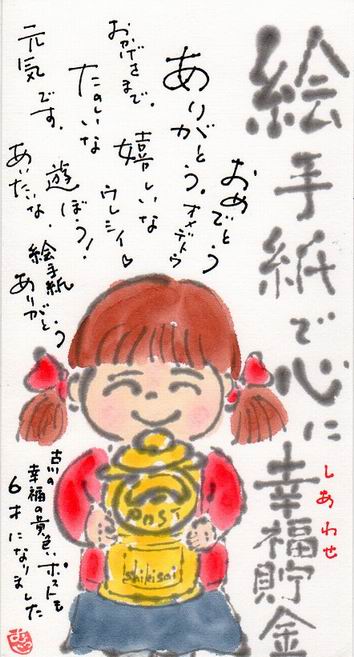 絵手紙で心に幸福貯金
しあわせ
おめでとう
オメデトウ
ありがとう。
嬉しいな
ウレシイ♡
おかげさまで。
たのしいな
遊ぼう！
元気です。
あいたいな、
絵手紙
ありがとう
POST
shikisai
古川の
幸福の黄色いポストも
6才になりました